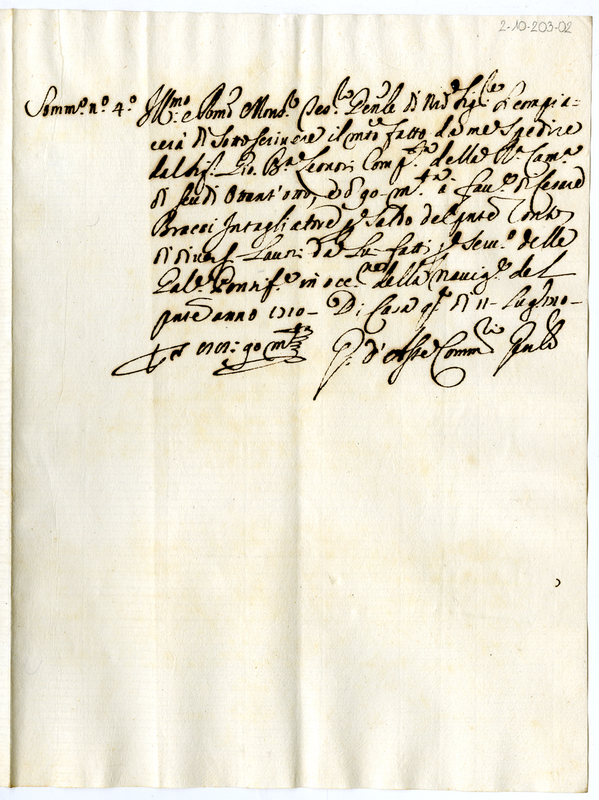 2-10-203-02
Somm.º nº 4º Ill.mo e R.mo Mons.r Tes.re Gen.le di N.ro Sig.re si compia-
cerà di Sottoscrivere il m.to fatto da me Spedire
dal Sig.r Gio. B.a Leonori Comp.a della R. Cam.a
di scudi Ottant'otto, e di 90 m.ta à fav.e di Cesare
Bracci Intagliatore p Saldo del pnte Conto
di diversi Lauori da Lui fatti p serv.o delle
Gal.e Pontif.e in occ.ne della navig.e del
pnte anno 1710 - Di Casa q.o dì 11 Luglio -
90 m.ta G. d'Aste Comm.rio Gnle